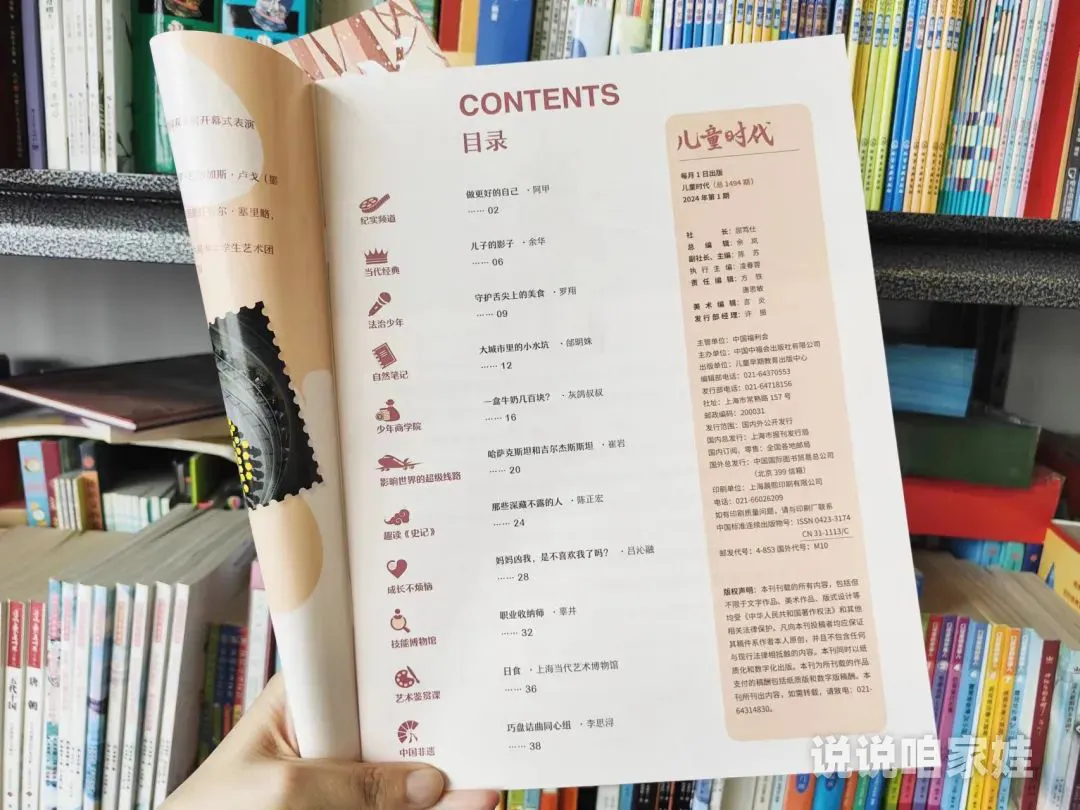 开幕式表演
加斯·卢戈
尔·塞里略，
学生艺术团
CONTENTS
目录
纪实频道
做更好的自己 ·阿甲
……02
当代经典
儿子的影子 ·余华
……06
法治少年
守护舌尖上的美食 ·罗翔
……09
自然笔记
大城市里的小水坑 ·邰明姝
……12
少年商学院
一盒牛奶几百块？ ·灰鸽叔叔
……16
影响世界的超级线路
哈萨克斯坦和吉尔杰斯斯坦 ·崔岩
……20
趣读《史记》
那些深藏不露的人 ·陈正宏
……24
成长不烦恼
妈妈凶我，是不喜欢我了吗？ ·吕沁融
……28
技能博物馆
职业收纳师 ·辜井
……32
艺术鉴赏课
日食 ·上海当代艺术博物馆
……36
中国非遗
巧盘诘曲同心纽 ·李思浔
……38
儿童时代
每月1日出版
儿童时代（总1494期）
2024年第1期
社 长：屈笃仕
总 编 辑：余 岚
副社长、主编：陈 苏
执 行 主 编：凌春蓉
责 任 编 辑：方 轶
唐思敏
美 术 编 辑：言 炎
发行部经理：许 振
主管单位：中国福利会
主办单位：中国中福会出版社有限公司
出版单位：儿童早期教育出版中心
编辑部电话：021-64370553
发行部电话：021-64718156
社址：上海市常熟路157号
邮政编码：200031
发行范围：国内外公开发行
国内总发行：上海市报刊发行局
国内订阅、零售：全国各地邮局
国外总发行：中国国际图书贸易总公司
（北京399信箱）
印刷单位：上海晨熙印刷有限公司
电话：021-66026209
如有印刷质量问题，请与印刷厂联系
中国标准连续出版物号：ISSN 0423-3174
CN 31-1113/C
邮发代号：4-853 国外代号：M10
版权声明：本刊刊载的所有内容，包括但
不限于文字作品、美术作品、版式设计等
均受《中华人民共和国著作权法》和其他
相关法律保护。凡向本刊投稿者均应保证
其稿件系作者本人原创，并且不包含任何
与现行法律相抵触的内容。本刊同时以纸
质化和数字化出版。本刊为所刊载的作品
支付的稿酬包括纸质版和数字版稿酬。本
刊所刊出内容，如需转载，请致电：021-
64314830。
五代十国
唐朝
说说咱家娃